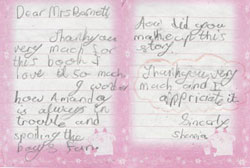 Dear Mrs Barnett
Thankyou
very much for
this book I
love it so much
I
how Amanda
is always in
trouble and
spoiling the
boys fun.
How did you
make up this
story.
Thankyou very
much and I
appriciate it
Sincerly